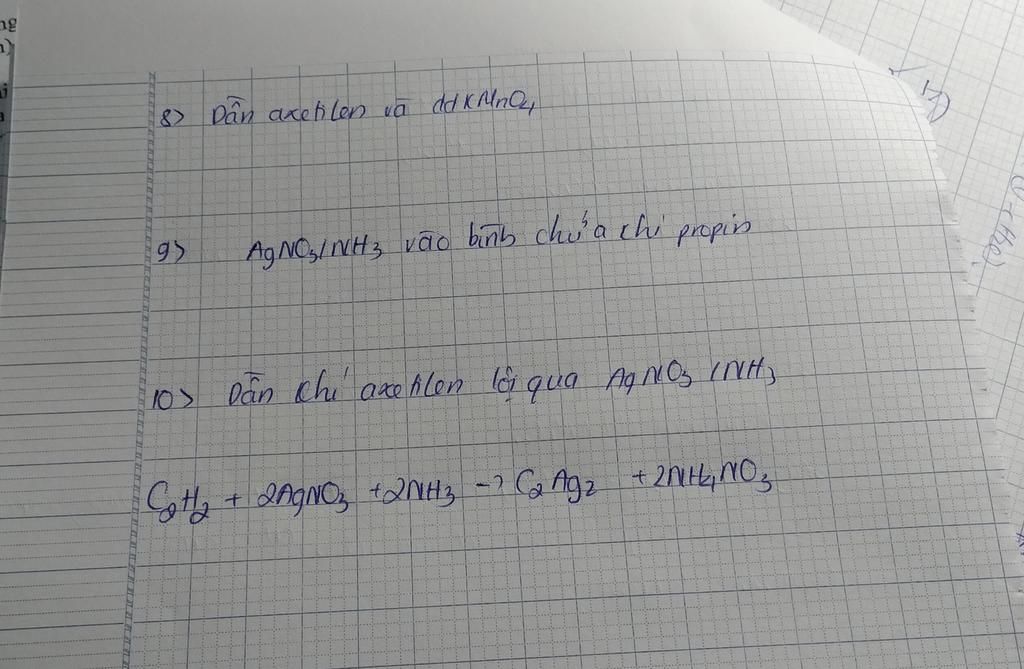 8) Dẫn axetilen và ddKMnO4
9) AgNO3/NH3 vào bình chứa chí propin
10) Dẫn khí axetilen lội qua AgNO3/NH3
C2H2 + 2AgNO3 + 2NH3 -> C2Ag2 + 2NH4NO3